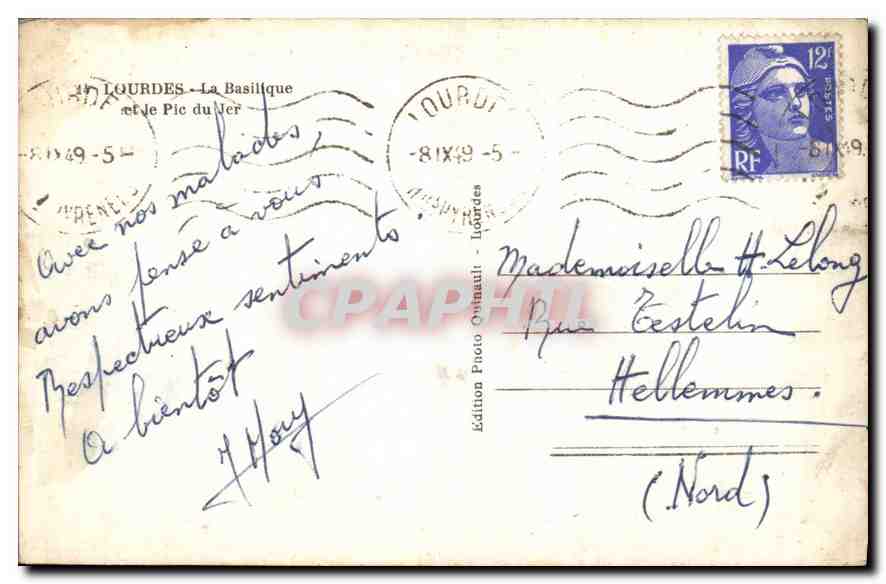 14 LOURDES - La Basilique
et le Pic du Jer
LOURDES
-8 IX 49 -5-
Htes PYRENEES
LOURDES
-8 IX 49 -5-
12F
POSTES
RF
Avec nos malades,
avons pensé à vous
Respectueux sentiments
A bientôt
Edition Photo Quinault - Lourdes
Mademoiselle H. Lelong
Rue Testelin
Hellemmes.
(Nord)
CPAPHIL